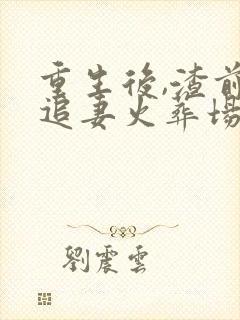 重生後,渣前
追妻火葬場
劉震雲